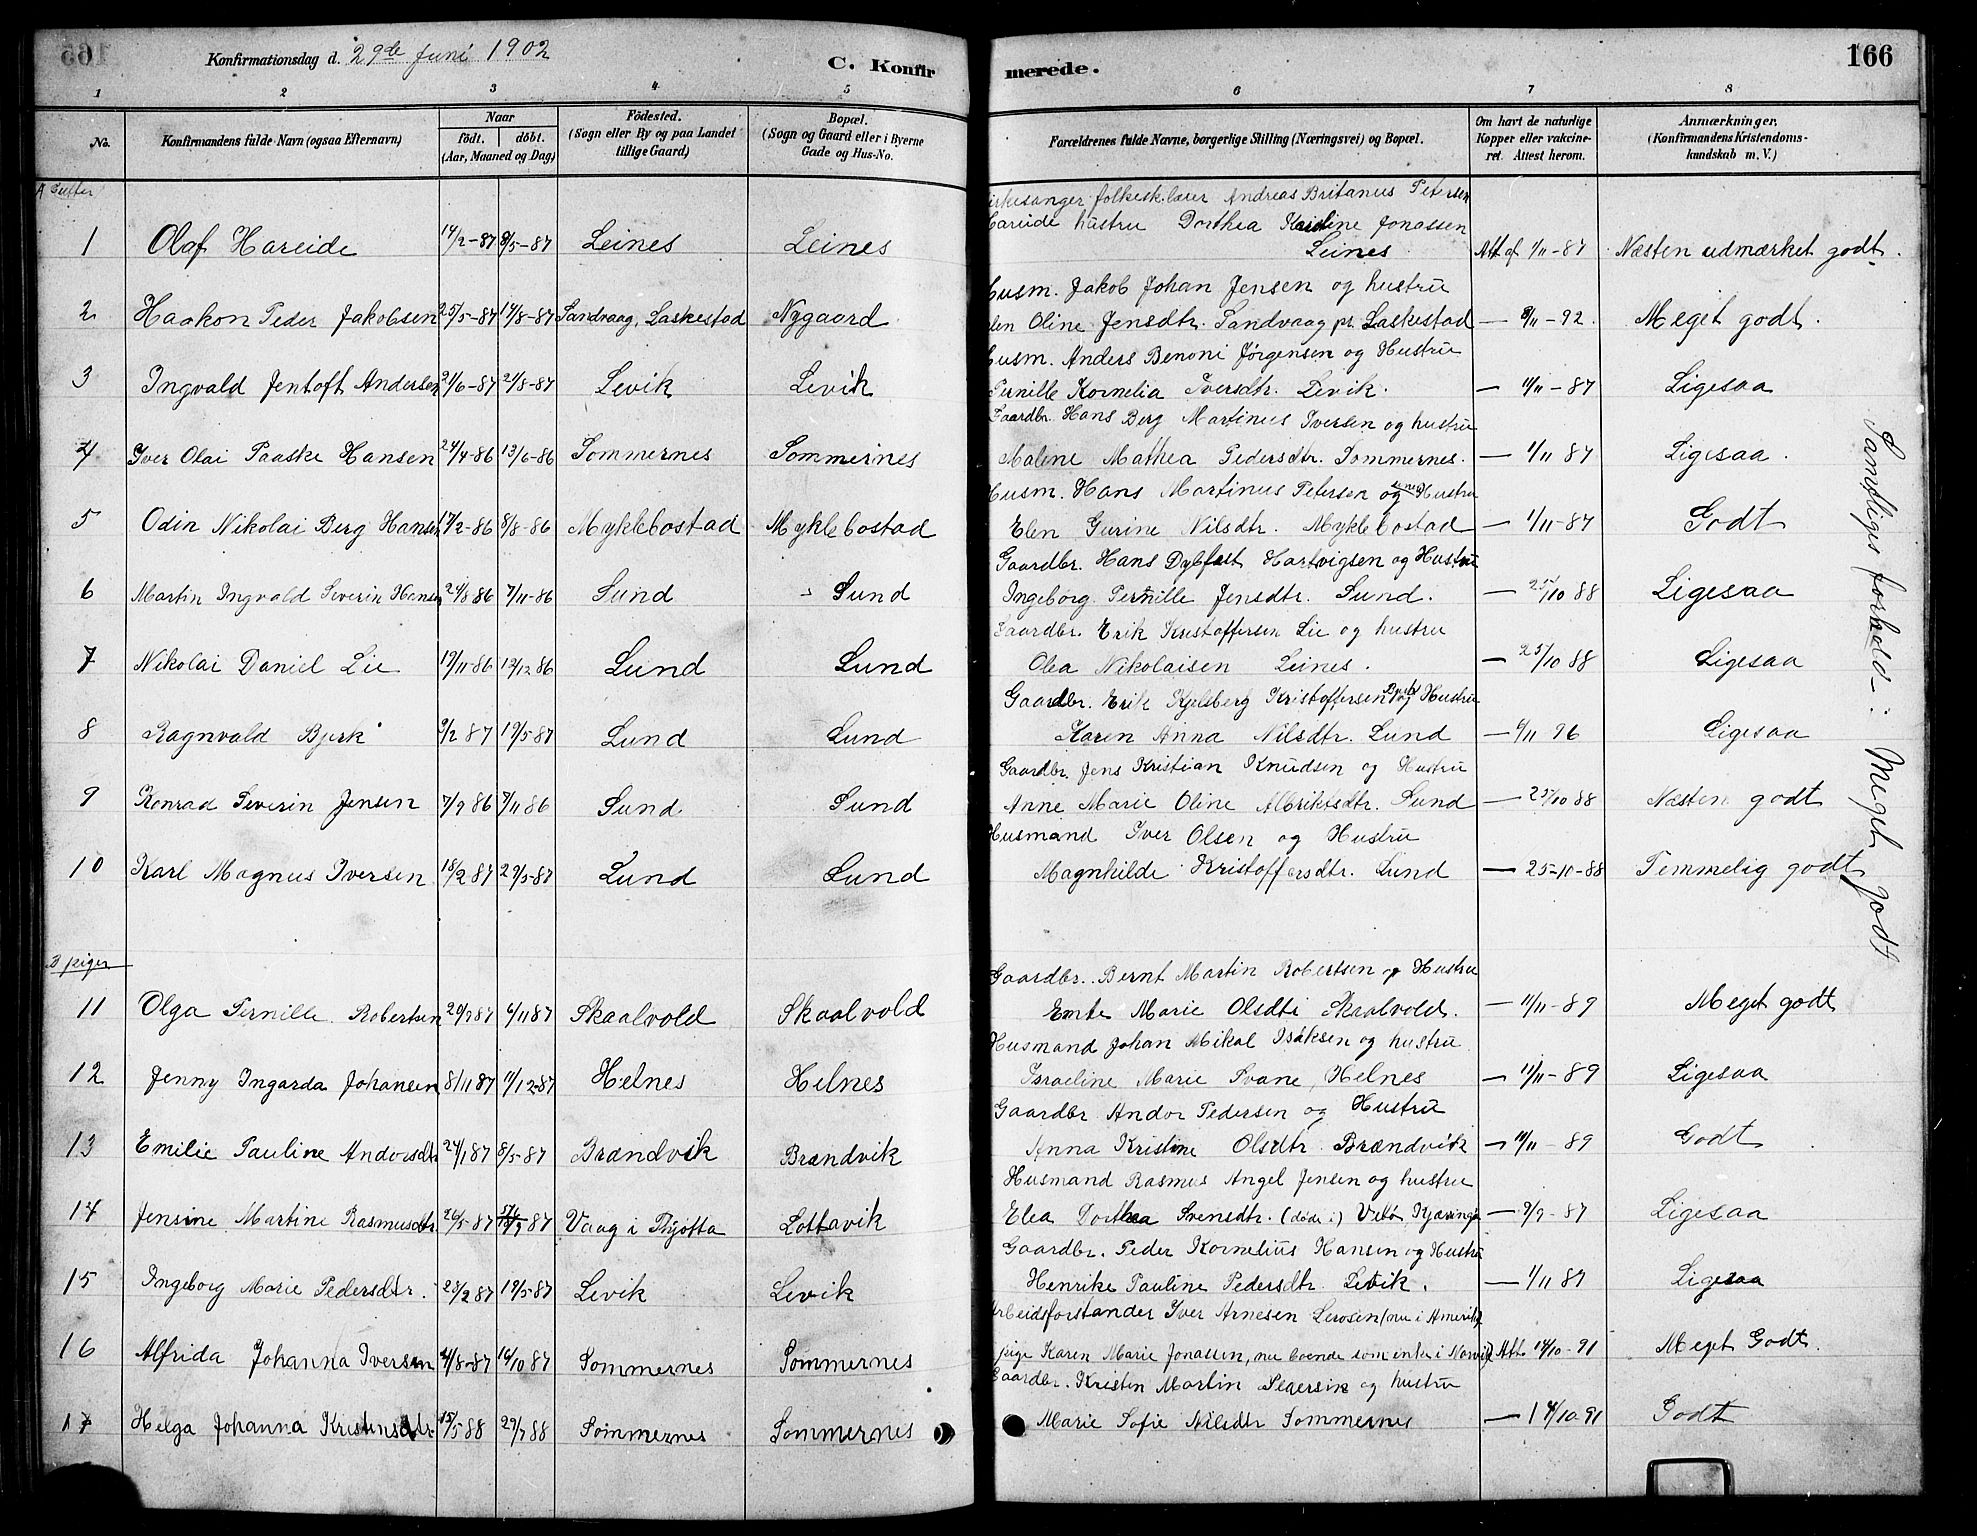 Konfirmationsdag d. 29de Juni 1902
C. Konfirmerede.
166
1 2 3 4 5 6 7 8
No.
Konfirmandens fulde Navn (ogsaa Efternavn)
Naar født. døbt. (Aar, Maaned og Dag)
Fødested. (Sogn eller By og paa Landet tillige Gaard)
Bopæl. (Sogn og Gaard eller i Byerne Gade og Hus-No.
Forældrenes fulde Navne, borgerlige Stilling (Næringsvei) og Bopæl.
Om havt de naturlige Kopper eller vakcineret. Attest herom.
Anmærkninger, (Konfirmandens Kristendomskundskab m. V.)
A Gutter
irkesanger folkesk.lærer Andreas Britanus Petersen
Hareide hustru Dorthea Karoline Jonassen
1 Olaf Hareide 14/2-87 8/5-87 Leines Leines Leines Att af 1/11-87 Næsten udmærket godt.
Husm. Jakob Johan Jensen og hustru
2 Haakon Peder Jakobsen 25/5-87 14/8-87 Sandvaag, Laskestad Nygaard Elen Oline Jensdtr. Sandvaag pr. Laskestad — 8/11-92. Meget godt.
Husm. Anders Benoni Jørgensen og Hustru
3 Ingvald Jentoft Andersen 21/6-87 21/8-87 Levik Levik Pernille Kornelia Iversdtr. Levik. — 11/11-87 Ligesaa
Gaardbr. Hans Berg Martinus Iversen og hustru
4 Iver Olai Paaske Hansen 24/4-86 13/6-86 Sommernes Sommernes Malene Mathea Pedersdtr. Sommernes. — 1/11 87 Ligesaa.
Husm. Hans Martinus Petersen og Hustru
5 Odin Nikolai Berg Hansen 17/2-86 8/8-86 Myklebostad Myklebostad Elen Gurine Nilsdtr. Myklebostad — 1/11-87 Godt
Gaardbr. Hans Dybfest Hartvigsen og Hustru
6 Martin Ingvald Severin Hansen 24/8 86 7/11-86 Sund Sund Ingeborg Pernille Jensdtr. Sund. — 25/10 88 Ligesaa
Gaardbr. Erik Kristoffersen Lie og hustru
7 Nikolai Daniel Lie 19/11-86 12/12 86 Lund Lund Olea Nikolaisen Leines. — 25/10 88 Ligesaa
Gaardbr. Erik Kjelsberg Kristoffersen og Hustru
8 Ragnvald Bjerk 9/2 87 19/5-87 Lund Lund Karen Anna Nilsdtr. Lund — 6/11 96 Ligesaa
Gaardbr. Jens Kristian Knudsen og Hustru
9 Konrad Severin Jensen 7/9 86 7/11 86 Sund Sund Anne Marie Oline Albriktsdtr. Sund — 25/10 88 Næsten godt
Husmand Iver Olsen og Hustru
10 Karl Magnus Iversen 18/2 87 29/5-87 Lund Lund Magnhilde Kristoffersdtr. Lund — 25-10-88 Temmelig godt
Samtliges forhold: Meget godt
B piger
Gaardbr. Bernt Martin Robertsen og Hustru
11 Olga Pernille Robertsen 20/9 87 6/11 87 Skaalvold Skaalvold Emte Marie Olsdtr Skaalvold. — 11/11-89 Meget godt
Husmand Johan Mikal Isaksen og hustru
12 Jenny Ingarda Johansen 8/11 87 11/12-87 Helnes Helnes Israeline Marie Svane, Helnes — 11/11-89 Ligesaa
Gaardbr Andor Pedersen og Hustru
13 Emilie Pauline Andorsdtr 24/1 87 8/5-87 Brændvik Brændvik Anna Kristine Olsdtr. Brændvik — 11/11-89 Godt
Husmand Rasmus Angel Jensen og hustru
14 Jensine Martine Rasmusdtr. 26/5-87 87 Vaag i Thjøtta Lottavik Elea Dorthea Svensdtr. (døde i) Kjæringø — 9/9-87 Ligesaa
Gaardbr. Peder Kornelius Hansen og Hustru
15 Ingeborg Marie Pedersdtr. 28/2 87 19/5-87 Levik Levik Henrike Pauline Pedersdtr. Levik. — 1/11 87 Ligesaa
Arbeidsforstander Iver Arnesen Lerosen (nu i Amerika
16 Alfrida Johanna Iversen 4/8-87 16/10 87 Sommernes Sommernes pige Karen Marie Jonassen, nu boende som enke i Narvik Att. 14/10-91 Meget Godt.
Gaardbr. Kristen Martin Segersen og hustru
17 Helga Johanna Kristensdtr. 15/5 88 29/7 88 Sommernes Sommernes Marie Sofie Nilsdtr Sommernes — 14/10 91 Godt